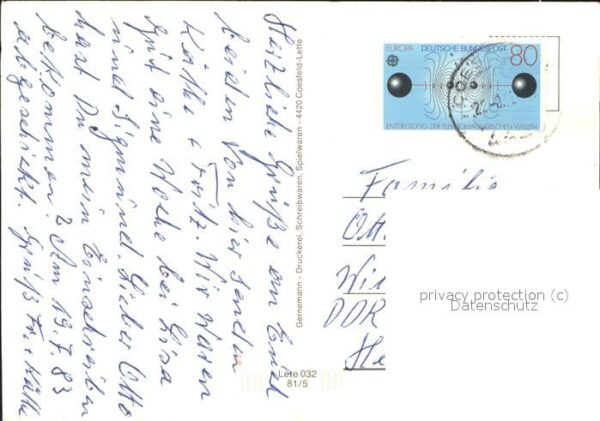 Herzliche Grüße an Euch
beiden von hier senden
Käthe + Fritz. Wir waren
gut eine Woche bei Lisa
und Sigmund. Lieber Otto
hast Du mein Einschreiben
bekommen? Am 19.7.83
abgeschickt. Gruß Fr. + Käthe
Gernemann - Druckerei, Schreibwaren, Spielwaren - 4420 Coesfeld-Lette
Lete 032
81/5
EUROPA DEUTSCHE BUNDESPOST 80
ENTDECKUNG DER ELEKTROMAGNETISCHEN WELLEN
Familie
Ott
Wi
DDR
He
privacy protection (c)
Datenschutz